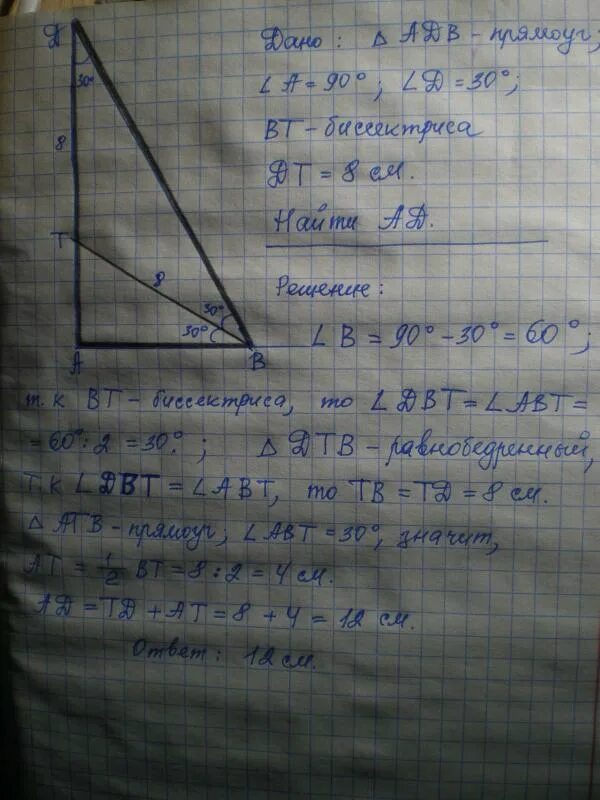 Д
30°
8
Т
8
30°
30°
А
В
Дано: △ АДВ - прямоуг;
∠А = 90°; ∠Д = 30°;
ВТ - биссектриса
ДТ = 8 см.
Найти АД.
Решение:
∠В = 90° - 30° = 60°;
т.к ВТ - биссектриса, то ∠ДВТ = ∠АВТ =
= 60° : 2 = 30°; △ ДТВ - равнобедренный,
т.к ∠ДВТ = ∠АВТ, то ТВ = ТД = 8 см.
△ АТВ - прямоуг; ∠АВТ = 30°, значит,
АТ = 1/2 ВТ = 8 : 2 = 4 см.
АД = ТД + АТ = 8 + 4 = 12 см.
Ответ: 12 см.